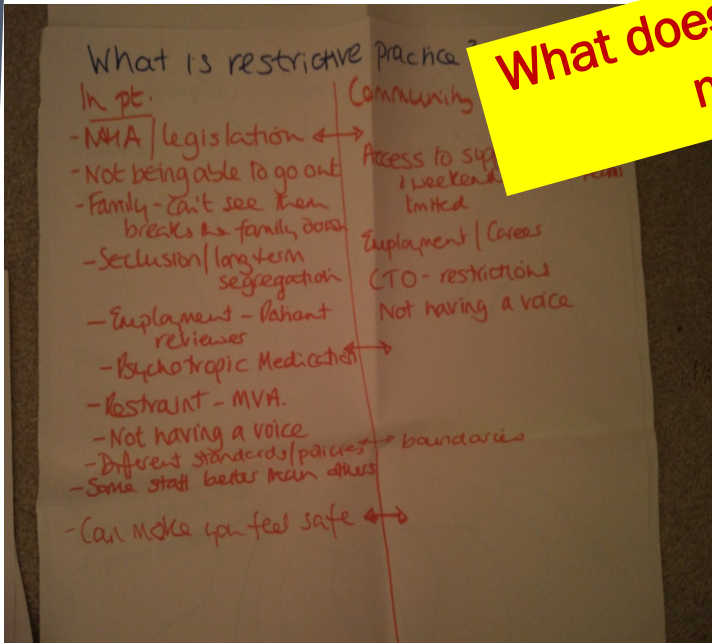 What is restrictive practice?
In pt.
- MHA / legislation
- Not being able to go out
- Family - can't see them
breaks the family down
- Seclusion / long term
segregation
- Employment - Patient
reviewer
- Psychotropic Medication
- Restraint - MVA.
- Not having a voice
- Different standards/policies
- Some staff better than others
- Can make you feel safe
Community
Access to
/ weekend
limited
Employment / Career
CTO - restrictions
Not having a voice
boundaries
What does